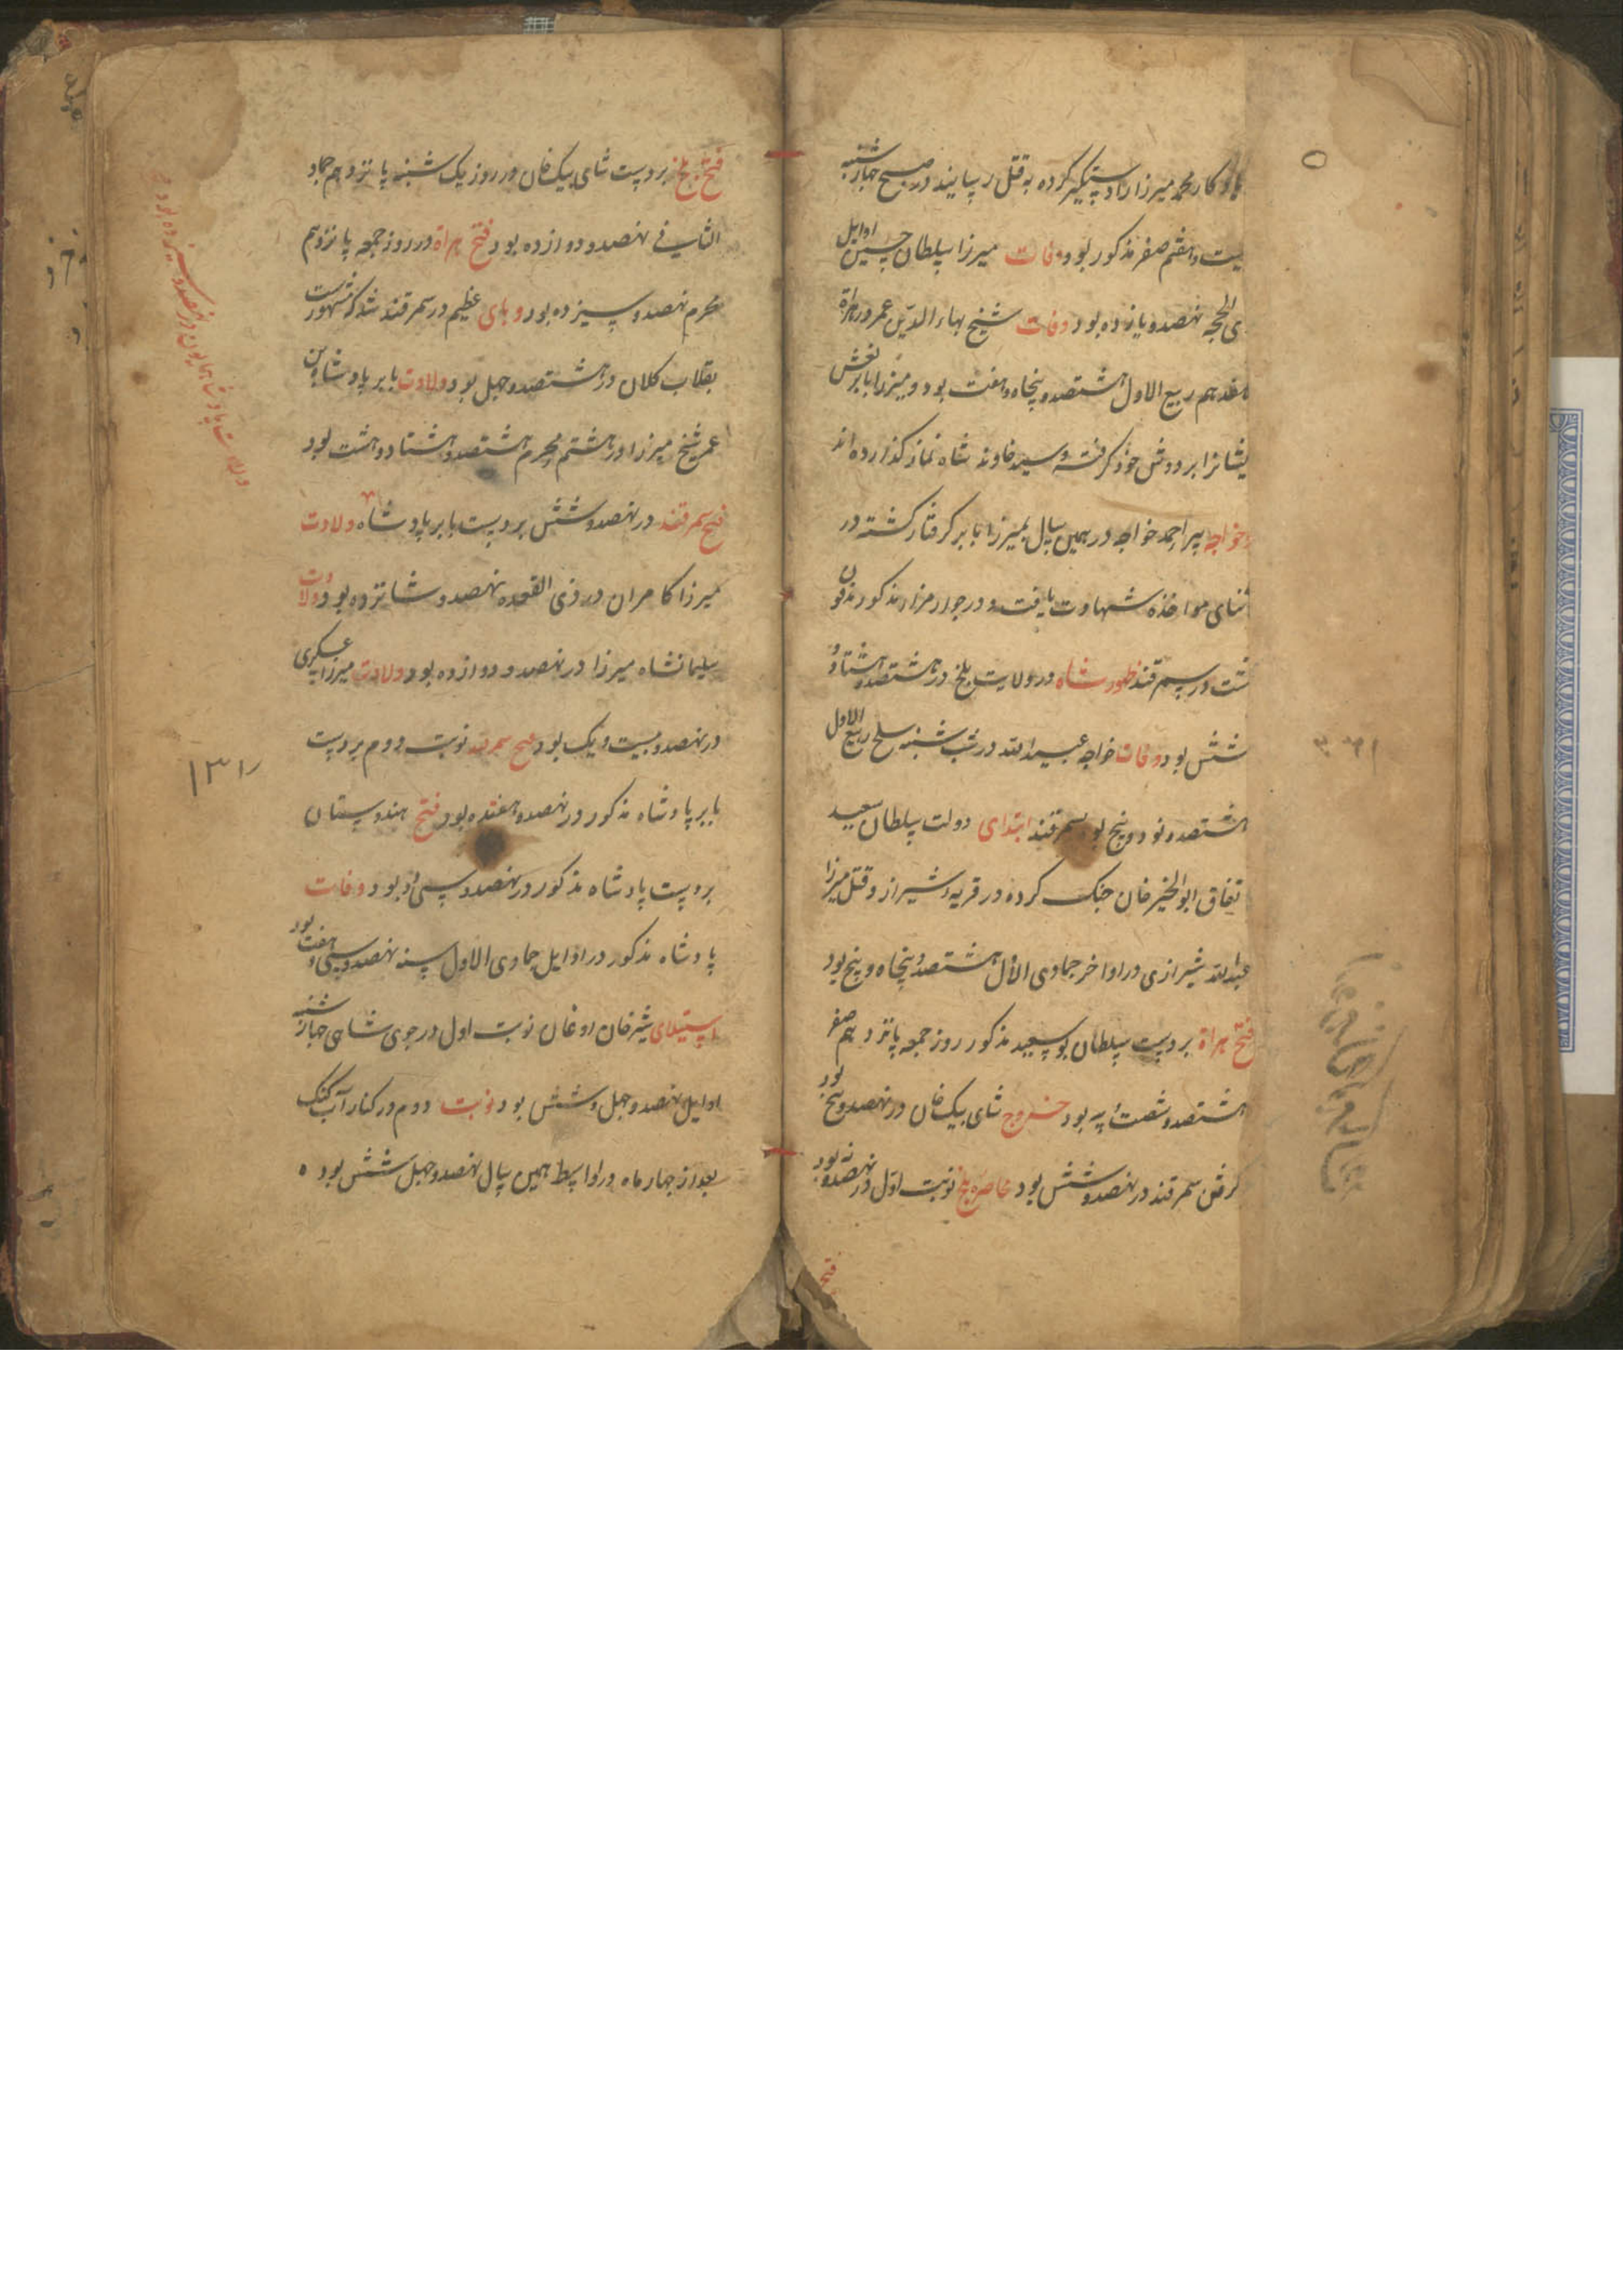 یادکار محمد میرزا را دستکیر کرده به قتل رسانیدند در صبح چهارشنبه
بیست و هفتم صفر مذکور بود وفات میرزا سلطان حسین اوایل
ذی الحجه نهصد و یازده بود وفات شیخ بهاء الدین عمر در هراة
هفدهم ربیع الاول هشتصد و پنجاه و هفت بود و میرزا بابر نعش
یشانرا بر دوش خود کرفته و سید خاوند شاه نماز کذارده اند
خواجه پیر احمد خواجه در همین سال بمیرزا بابر کرفتار کشته در
ثنای مواخذه شهادت یافت و در جوار مزار مذکور مدفون
در سمرقند ظهور شاه در ولایت بلخ در هشتصد و هشتاد و
شش بود وفات خواجه عبید الله در شب شنبه سلخ ربیع الاول
هشتصد و نود و پنج بود بسمرقند ابتدای دولت سلطان سعید
تفاق ابو الخیر خان جنک کرده در قریه شیراز و قتل میرزا
عبد الله شیرازی در اواخر جمادی الاول هشتصد و پنجاه و پنج بود
فتح هراة بر دست سلطان بو سعید مذکور روز جمعه پانزدهم صفر
هشتصد و شصت و سه بود خروج شای بیک خان در نهصد و پنج بود
کرفتن سمرقند در نهصد و شش بود محاصره بلخ نوبت اول در نهصد و نه بود
فتح
فتح بلخ بر دست شای بیک خان در روز یک شنبه پانزدهم جماد
الثانی فی نهصد و دوازده بود فتح هراة در روز جمعه پانزدهم
محرم نهصد و سیزده بود وبای عظیم در سمرقند شد که مشهورست
بقلاب کلان در هشتصد و چهل بود ولادت بابر پادشاه بن
عمر شیخ میرزا در هشتم محرم هشتصد و هشتاد و هشت بود
فتح سمرقند در نهصد و شش بر دست بابر پادشاه ولادت
میرزا کامران در ذی القعده نهصد و شانزده بود ولادت
سلیمانشاه میرزا در نهصد و دوازده بود ولادت میرزا عسکری
در نهصد و بیست و یک بود فتح سمرقند نوبت دوم بر دست
بابر پادشاه مذکور در نهصد و هفده بود فتح هندوستان
بر دست پادشاه مذکور در نهصد و سی و دو بود وفات
پادشاه مذکور در اوایل جمادی الاول سنه نهصد و سی و هفت بود
استیلای شیر خان اوغان نوبت اول در جوی شاهی چهارشنبه
اوایل نهصد و چهل و شش بود نوبت دوم در کنار آب کنک
بعد از چهار ماه در اواسط همین سال نهصد و چهل شش بود ه
ولادت پادشاه همایون در نهصد و سیزده بود